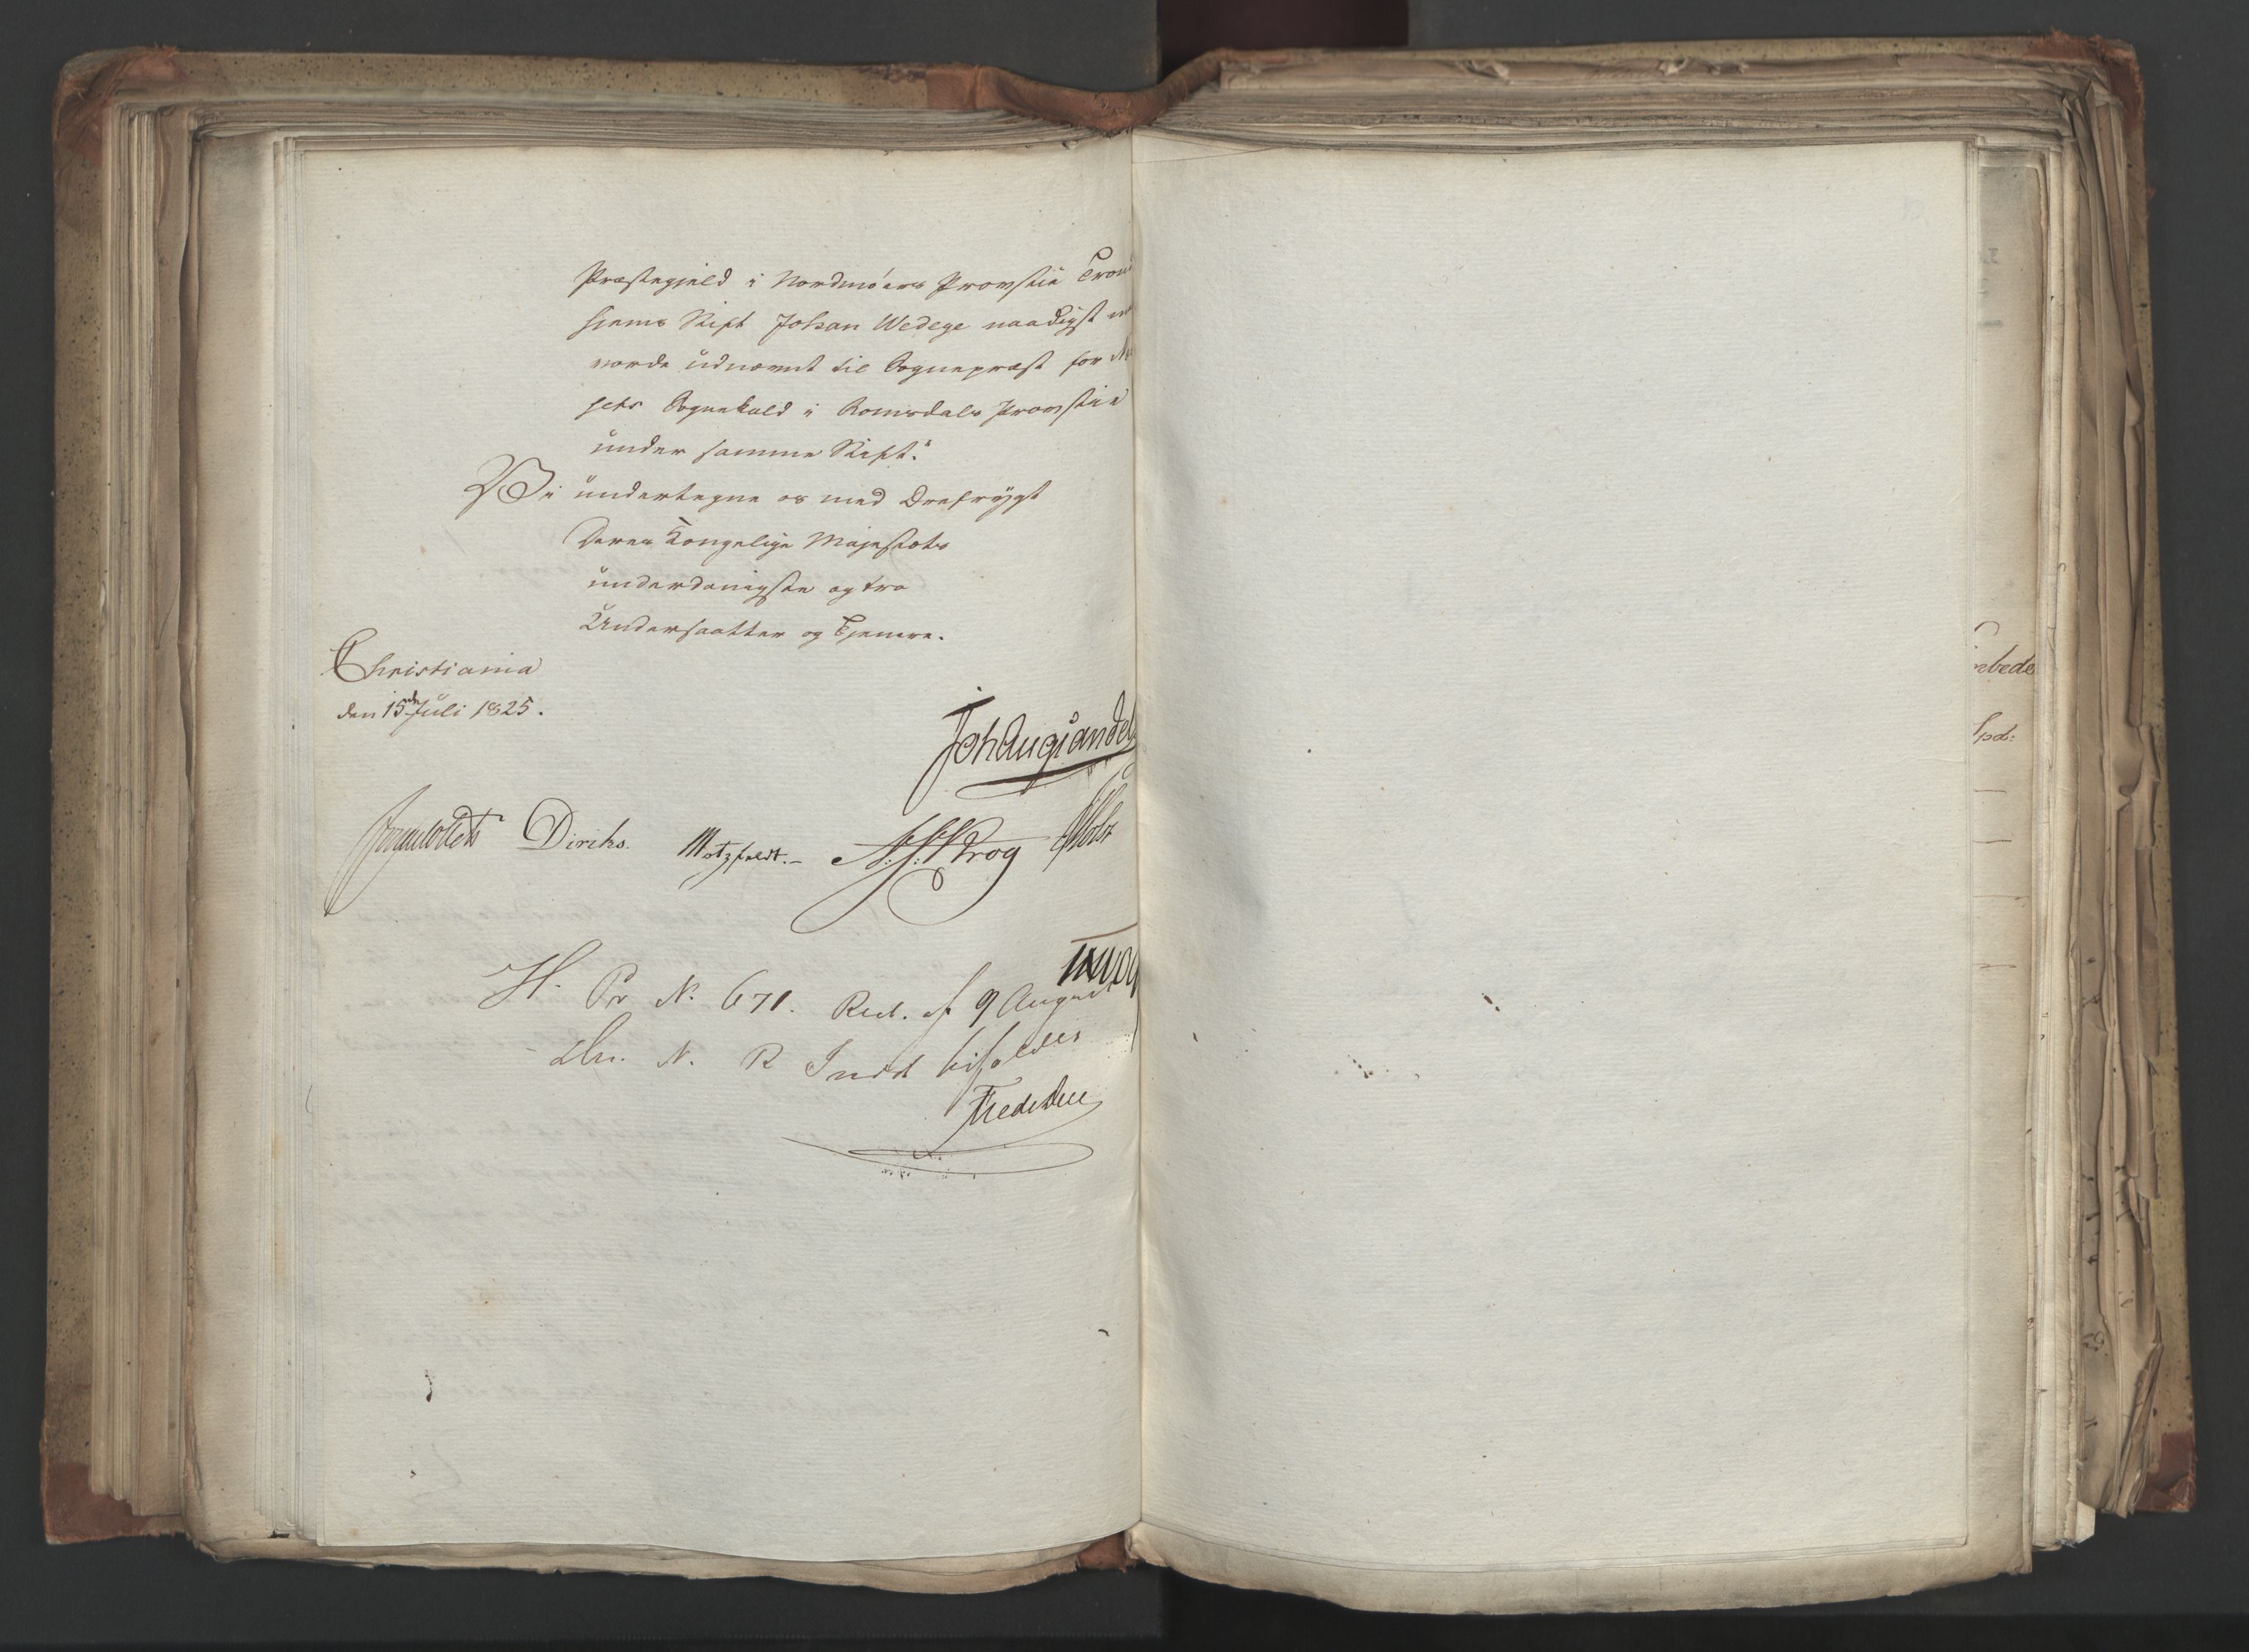 Præstegjeld i Nordmøers Provstie Trond
hjems Stift Johan Wedege naadigst
vorde udnævnt til Sognepræst for
sets Sognekald i Romsdals Provstie
under samme Stift."
Vi undertegne os med Ærefrygt
Deres Kongelige Majestæts
underdanigste og troe
Undersaatter og Tjenere.
Christiania
den 15de Juli 1825.
Joh Aug Sandels
Jonas Collett Diriks. Motzfeldt.- A. S. Krog Holst
H. Pr N. 671. Res. af 9 August
N. R Indst bifaldes
Fred: Due
mbede
Spd: